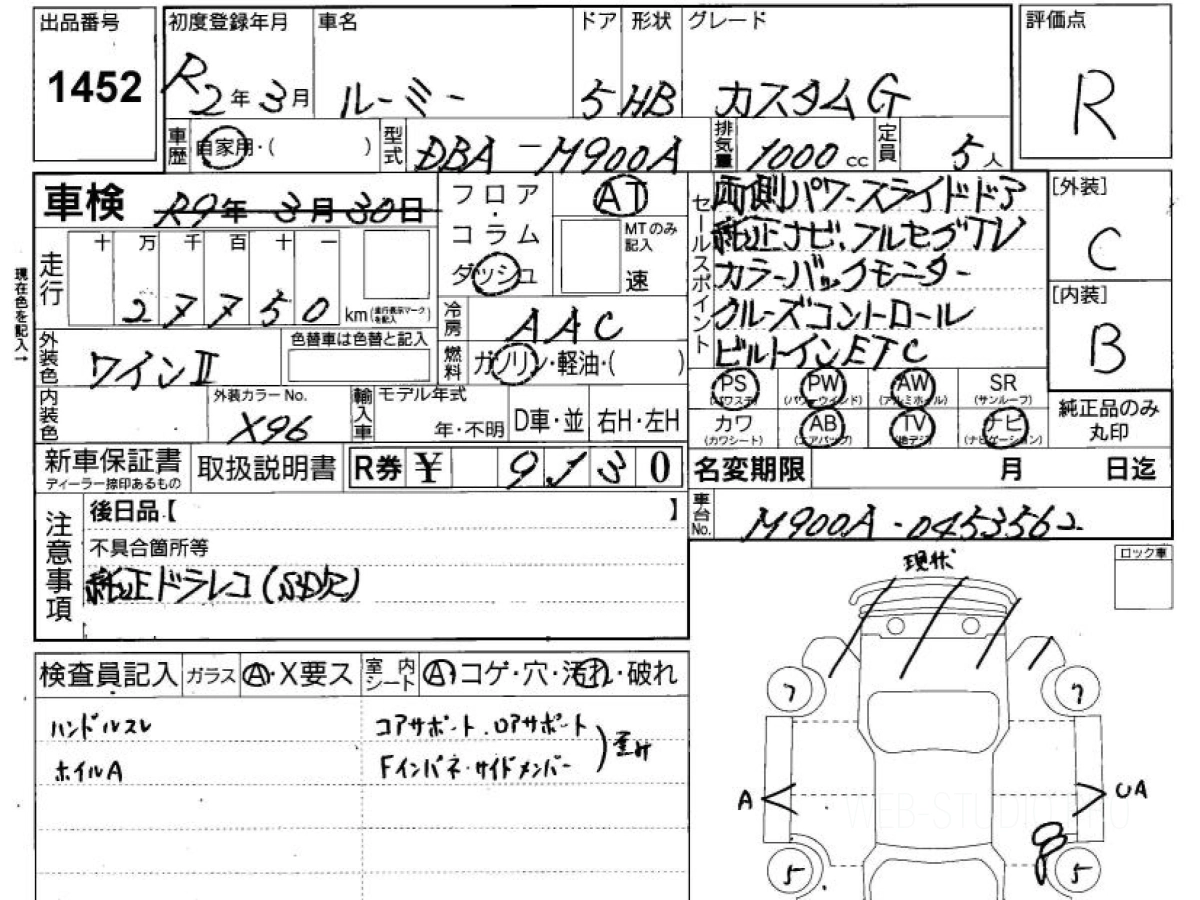 出品番号 初度登録年月 車名 ドア 形状 グレード 評価点
1452 R2年3月 ルーミー 5 HB カスタムG R
車歴 自家用・( ) 型式 DBA-M900A 排気量 1000cc 定員 5人
車検 R9年3月30日
フロア・コラム ダッシュ AT
MTのみ記入 速
セールスポイント
両側パワースライドドア
純正ナビ、フルセグTV
カラーバックモニター
クルーズコントロール
ビルトインETC
[外装] C
[内装] B
現在色を記入→
走行 十 万 千 百 十 一
27750 km(走行表示マークを記入)
冷房 AAC
外装色 ワインII 色替車は色替と記入
燃料 ガソリン・軽油・( )
PS (パワステ) PW (パワーウインド) AW (アルミホイル) SR (サンルーフ)
カワ (カワシート) AB (エアバッグ) TV (地デジ) ナビ (ナビゲーション)
純正品のみ丸印
内装色 外装カラーNo. X96 輸入車 モデル年式 年・不明 D車・並 右H・左H
新車保証書 ディーラー捺印あるもの 取扱説明書 R券 ¥ 9,130
名変期限 月 日迄
車台No. M900A-0453562
注意事項
後日品【 】
不具合箇所等
純正ドラレコ(SD欠)
現状
ロック車
検査員記入 ガラス A・X要ス 室内シート A・コゲ・穴・汚れ・破れ
ハンドルスレ コアサポート、ロアサポート
ホイルA Fインパネ・サイドメンバー )歪み
7 7
A UA
5 5
WEB-STUDIO.PRO